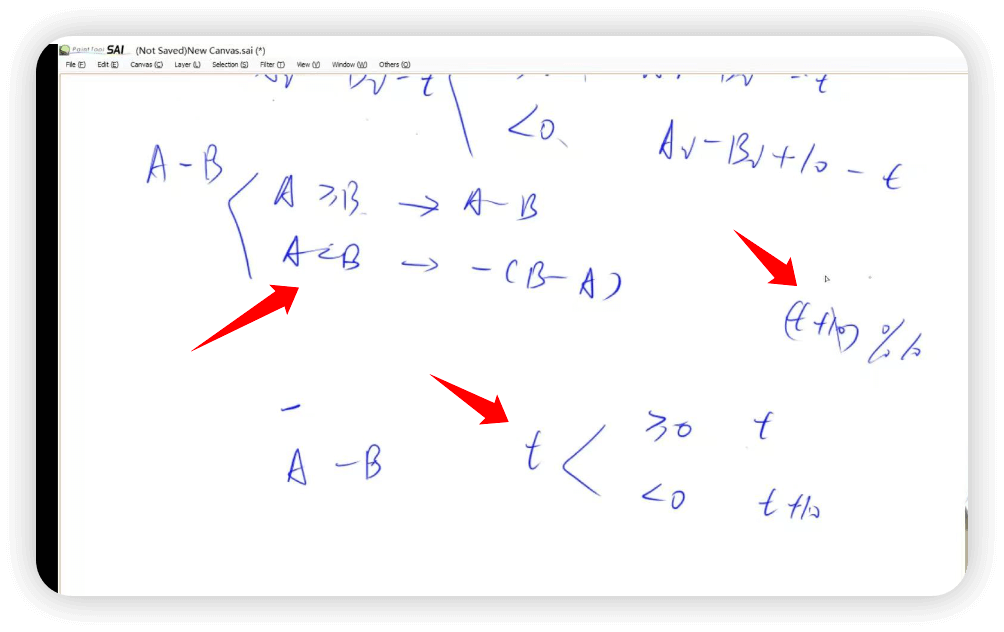 Paint Tool SAI (Not Saved)New Canvas.sai (*)
File (F) Edit (E) Canvas (C) Layer (L) Selection (S) Filter (T) View (V) Window (W) Others (O)
- t
- t
<0
Ai - Bi + 10 - t
A - B
A ≥ B → A - B
A < B → -(B - A)
(t + 10) % 10
A - B
t
≥0 t
<0 t + 10